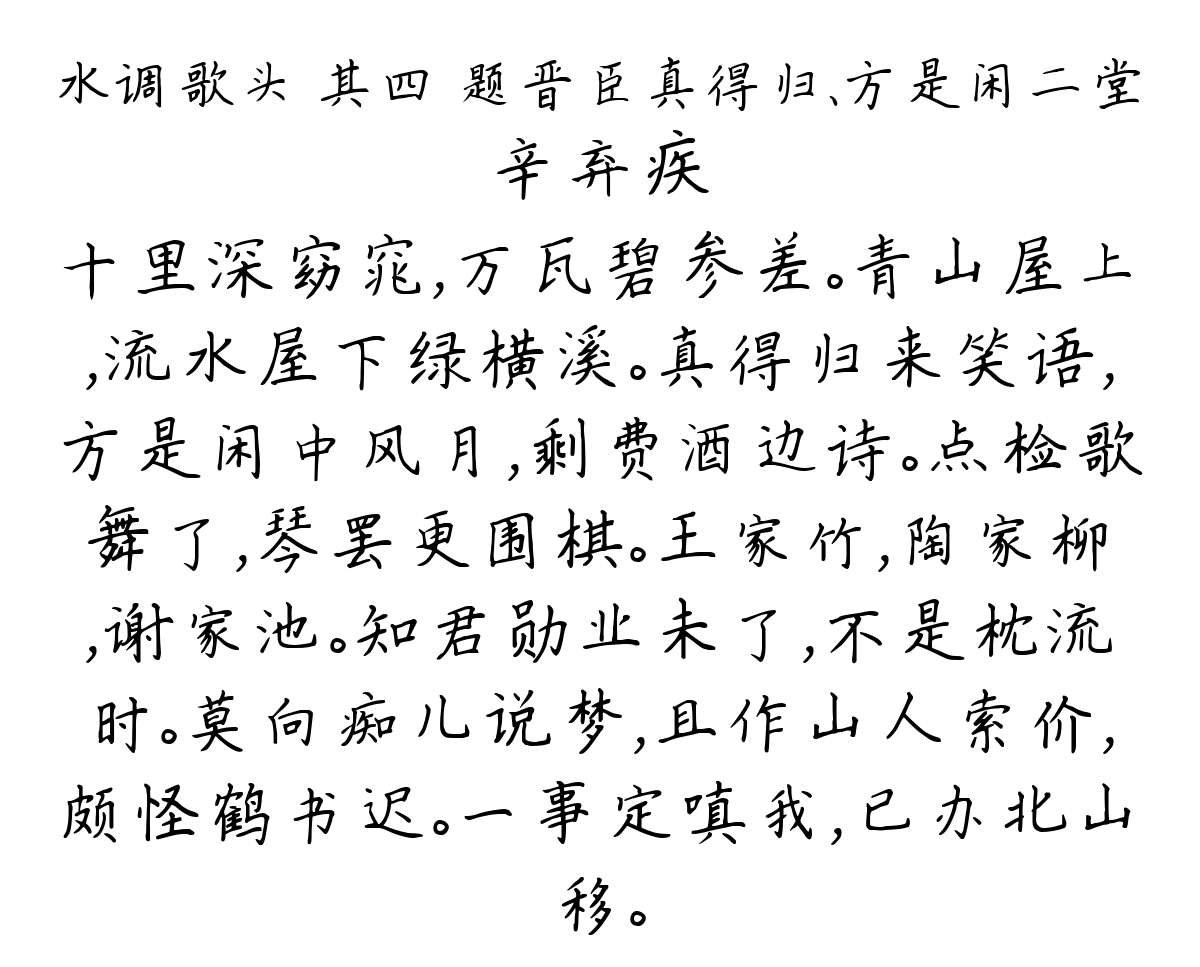 水调歌头 其四 题晋臣真得归、方是闲二堂
辛弃疾
十里深窈窕,万瓦碧参差。青山屋上
,流水屋下绿横溪。真得归来笑语,
方是闲中风月,剩费酒边诗。点检歌
舞了,琴罢更围棋。王家竹,陶家柳
,谢家池。知君勋业未了,不是枕流
时。莫向痴儿说梦,且作山人索价,
颇怪鹤书迟。一事定嗔我,已办北山
移。